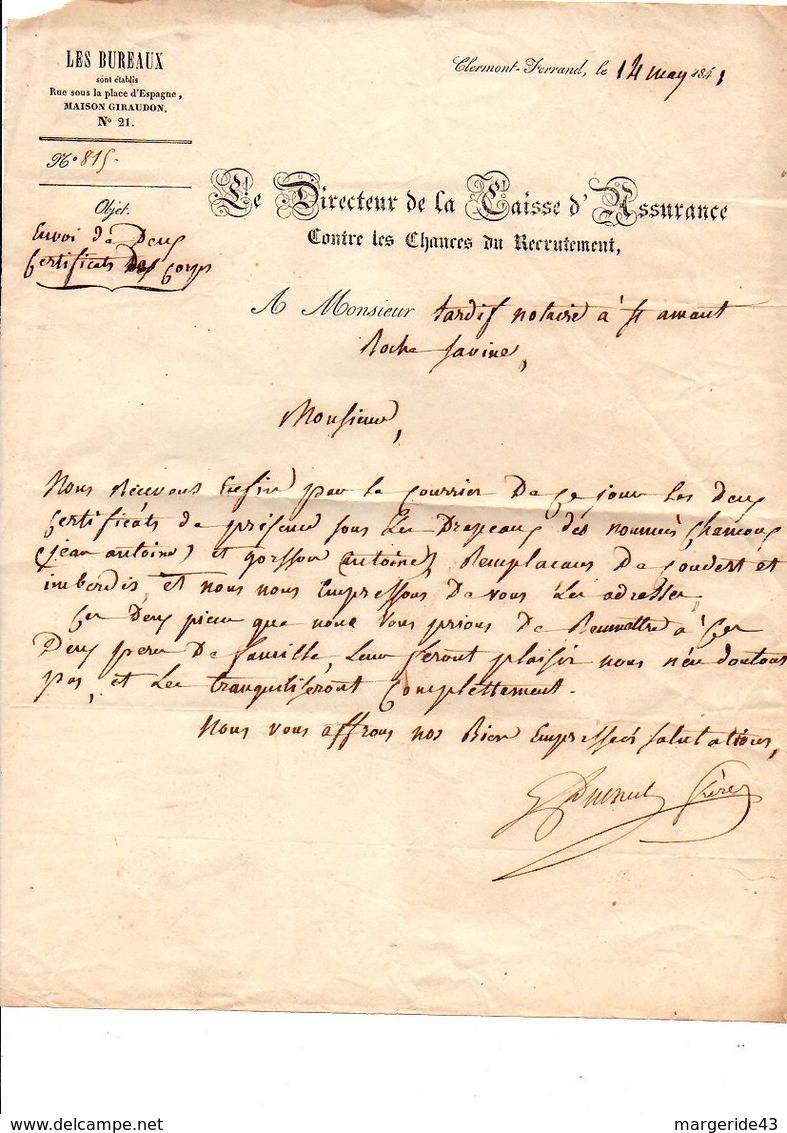 LES BUREAUX
sont établis
Rue sous la place d'Espagne,
MAISON GIRAUDON.
N° 21.
Clermont-Ferrand, le 14 may 1841
N° 815.
Objet.
Envoi de Deux
Certificats Des Corps
Le Directeur de la Caisse d'Assurance
Contre les Chances du Recrutement,
A Monsieur tardif notaire à St amant
Roche Savine,
Monsieur,
Nous Recevons Enfin par le Courrier De Ce jour Les Deux
Certificats de présence sous Les Drapeaux des nommés
(jean antoine) et (antoine), Remplacans De Couvert et
imberdis, et nous nous Empressons De vous Les adresser,
Ces Deux pieces que nous Vous prions De Remettre à Ces
Deux peres De famille, Leur feront plaisir nous n'en doutons
pas, et Les tranquiliseront Complettement.
Nous vous offrons nos Bien Empressées salutations,
frères
margeride43